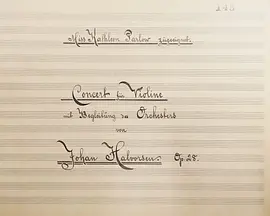 Miss Kathleen Parlow zugeeignet.
Concert für Violine
mit Begleitung des Orchesters
von
Johan Halvorsen. Op. 28.